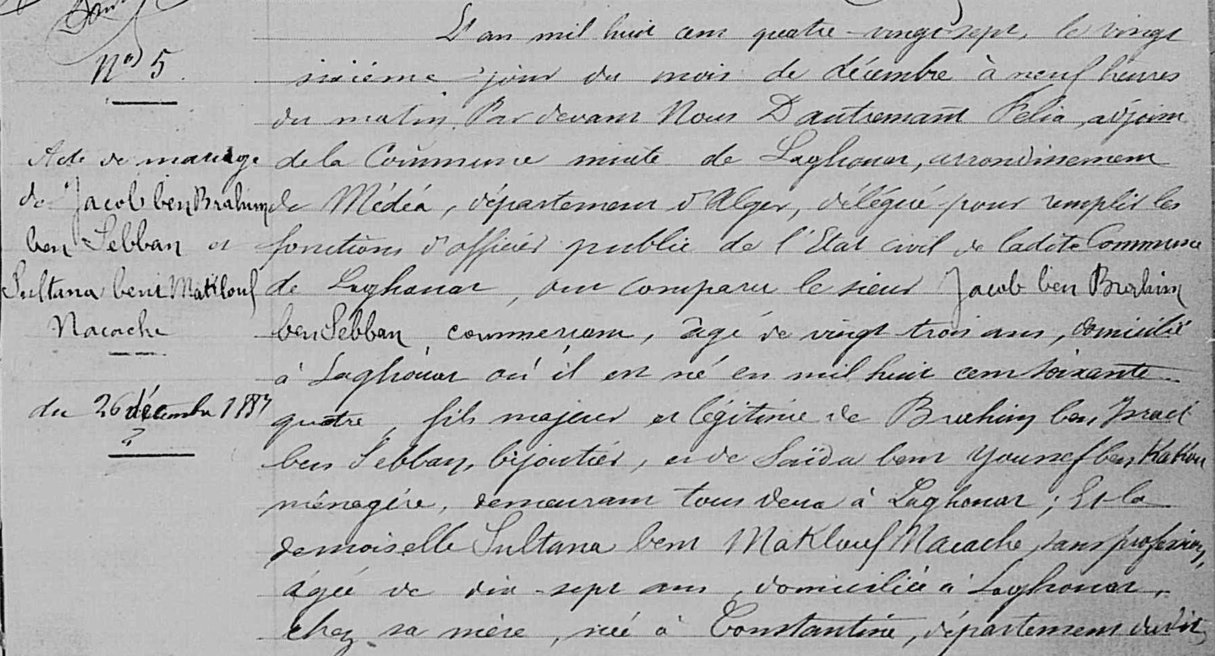 No 5.
Acte de mariage
de Jacob ben Brahim
ben Sebban et
Sultana bent Maklouf
Nacache
du 26 décembre 1887
L'an mil huit cent quatre-vingt sept, le vingt
sixième jour du mois de décembre à neuf heures
du matin. Par devant Nous Dautremant Félix, adjoint
de la Commune mixte de Laghouat, arrondissement
de Médéa, département d'Alger, délégué pour remplir les
fonctions d'officier public de l'Etat civil de ladite Commune
de Laghouat, ont comparu le sieur Jacob ben Brahim
ben Sebban, commerçant, âgé de vingt trois ans, domicilié
à Laghouat où il est né en mil huit cent soixante
quatre, fils majeur et légitime de Brahim ben Israël
ben Sebban, bijoutier, et de Saïda bent Youssef ben Kakou
ménagère, demeurant tous deux à Laghouat ; Et la
demoiselle Sultana bent Maklouf Nacache, sans profession,
âgée de dix-sept ans, domiciliée à Laghouat,
chez sa mère, née à Constantine, département dudit